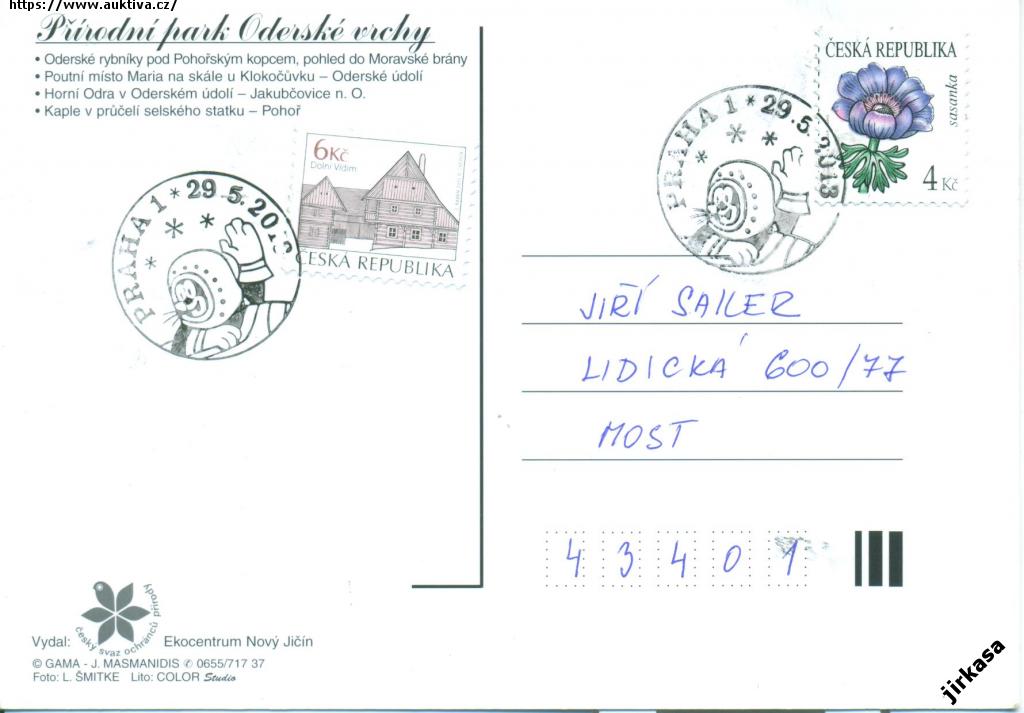 https://www.auktiva.cz/
Přírodní park Oderské vrchy
• Oderské rybníky pod Pohořským kopcem, pohled do Moravské brány
• Poutní místo Maria na skále u Klokočůvku – Oderské údolí
• Horní Odra v Oderském údolí – Jakubčovice n. O.
• Kaple v průčelí selského statku – Pohoř
6Kč
Dolní Vidim
ČESKÁ REPUBLIKA
PRAHA 1 * 29.5.2013
ČESKÁ REPUBLIKA
sasanka
4 Kč
PRAHA 1 * 29.5.2013
JIŘÍ SAILER
LIDICKÁ 600/77
MOST
4 3 4 0 1
český svaz ochránců přírody
Vydal: Ekocentrum Nový Jičín
© GAMA - J. MASMANIDIS ✆ 0655/717 37
Foto: L. ŠMITKE Lito: COLOR Studio
jirkasa